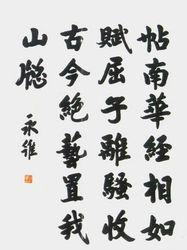 帖南華經相如
賦屈子離騷收
古今絕藝置我
山牕
永